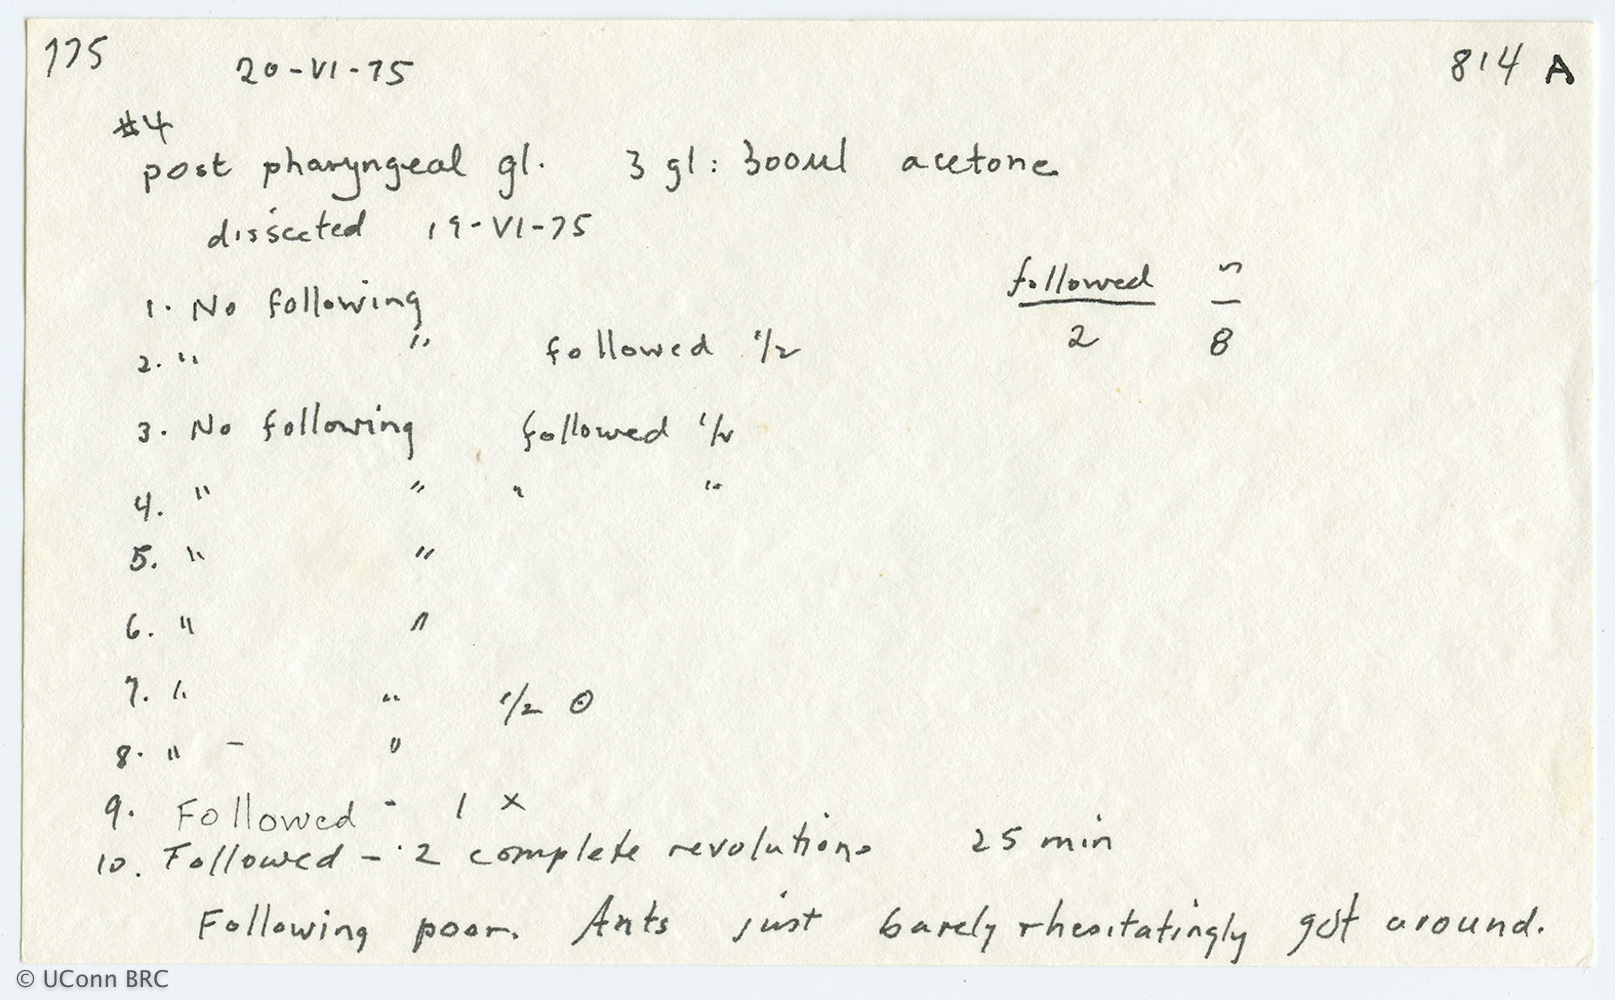 775 814 A
20-VI-75
#4
post pharyngeal gl. 3 gl: 300ul acetone
dissected 19-VI-75
followed ~
1. No following
2. " " followed 1/2 2 8
3. No following followed 1/2
4. " " " "
5. " "
6. " "
7. " " 1/2 ⊙
8. " - "
9. Followed - 1 x
10. Followed - 2 complete revolutions 25 min
Following poor. Ants just barely + hesitatingly got around.
© UConn BRC